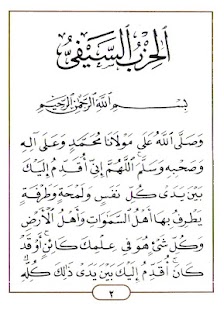 الحِزْبُ السَّيْفِيُّ
بِسْمِ اللَّهِ الرَّحْمَنِ الرَّحِيمِ
وَصَلَّى اللَّهُ عَلَى مَوْلَانَا مُحَمَّدٍ وَعَلَى آلِهِ
وَصَحْبِهِ وَسَلَّمَ اللَّهُمَّ إِنِّي أُقَدِّمُ إِلَيْكَ
بَيْنَ يَدَيْ كُلِّ نَفَسٍ وَلَمْحَةٍ وَطَرْفَةٍ
يَطْرِفُ بِهَا أَهْلُ السَّمَوَاتِ وَأَهْلُ الْأَرْضِ
وَكُلِّ شَيْءٍ هُوَ فِي عِلْمِكَ كَائِنٌ أَوْ قَدْ
كَانَ أُقَدِّمُ إِلَيْكَ بَيْنَ يَدَيْ ذَلِكَ كُلِّهِ
٢